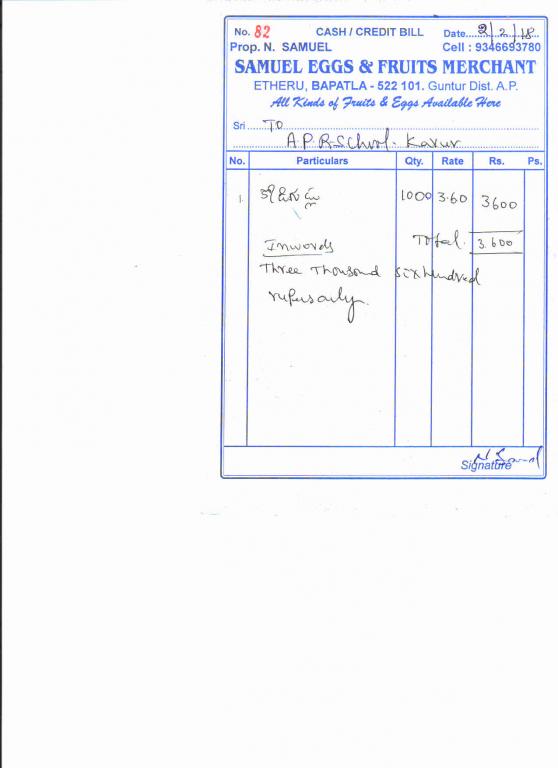 No. 82 CASH / CREDIT BILL Date 2/2/18
Prop. N. SAMUEL Cell : 9346693780
SAMUEL EGGS & FRUITS MERCHANT
ETHERU, BAPATLA - 522 101. Guntur Dist. A.P.
All Kinds of Fruits & Eggs Available Here
Sri TO
A.P.R-School. Karur
No. Particulars Qty. Rate Rs. Ps.
1. 1000 3.60 3600
Inwords Total. 3.600
Three Thousand six hundred
rupus only.
Signature